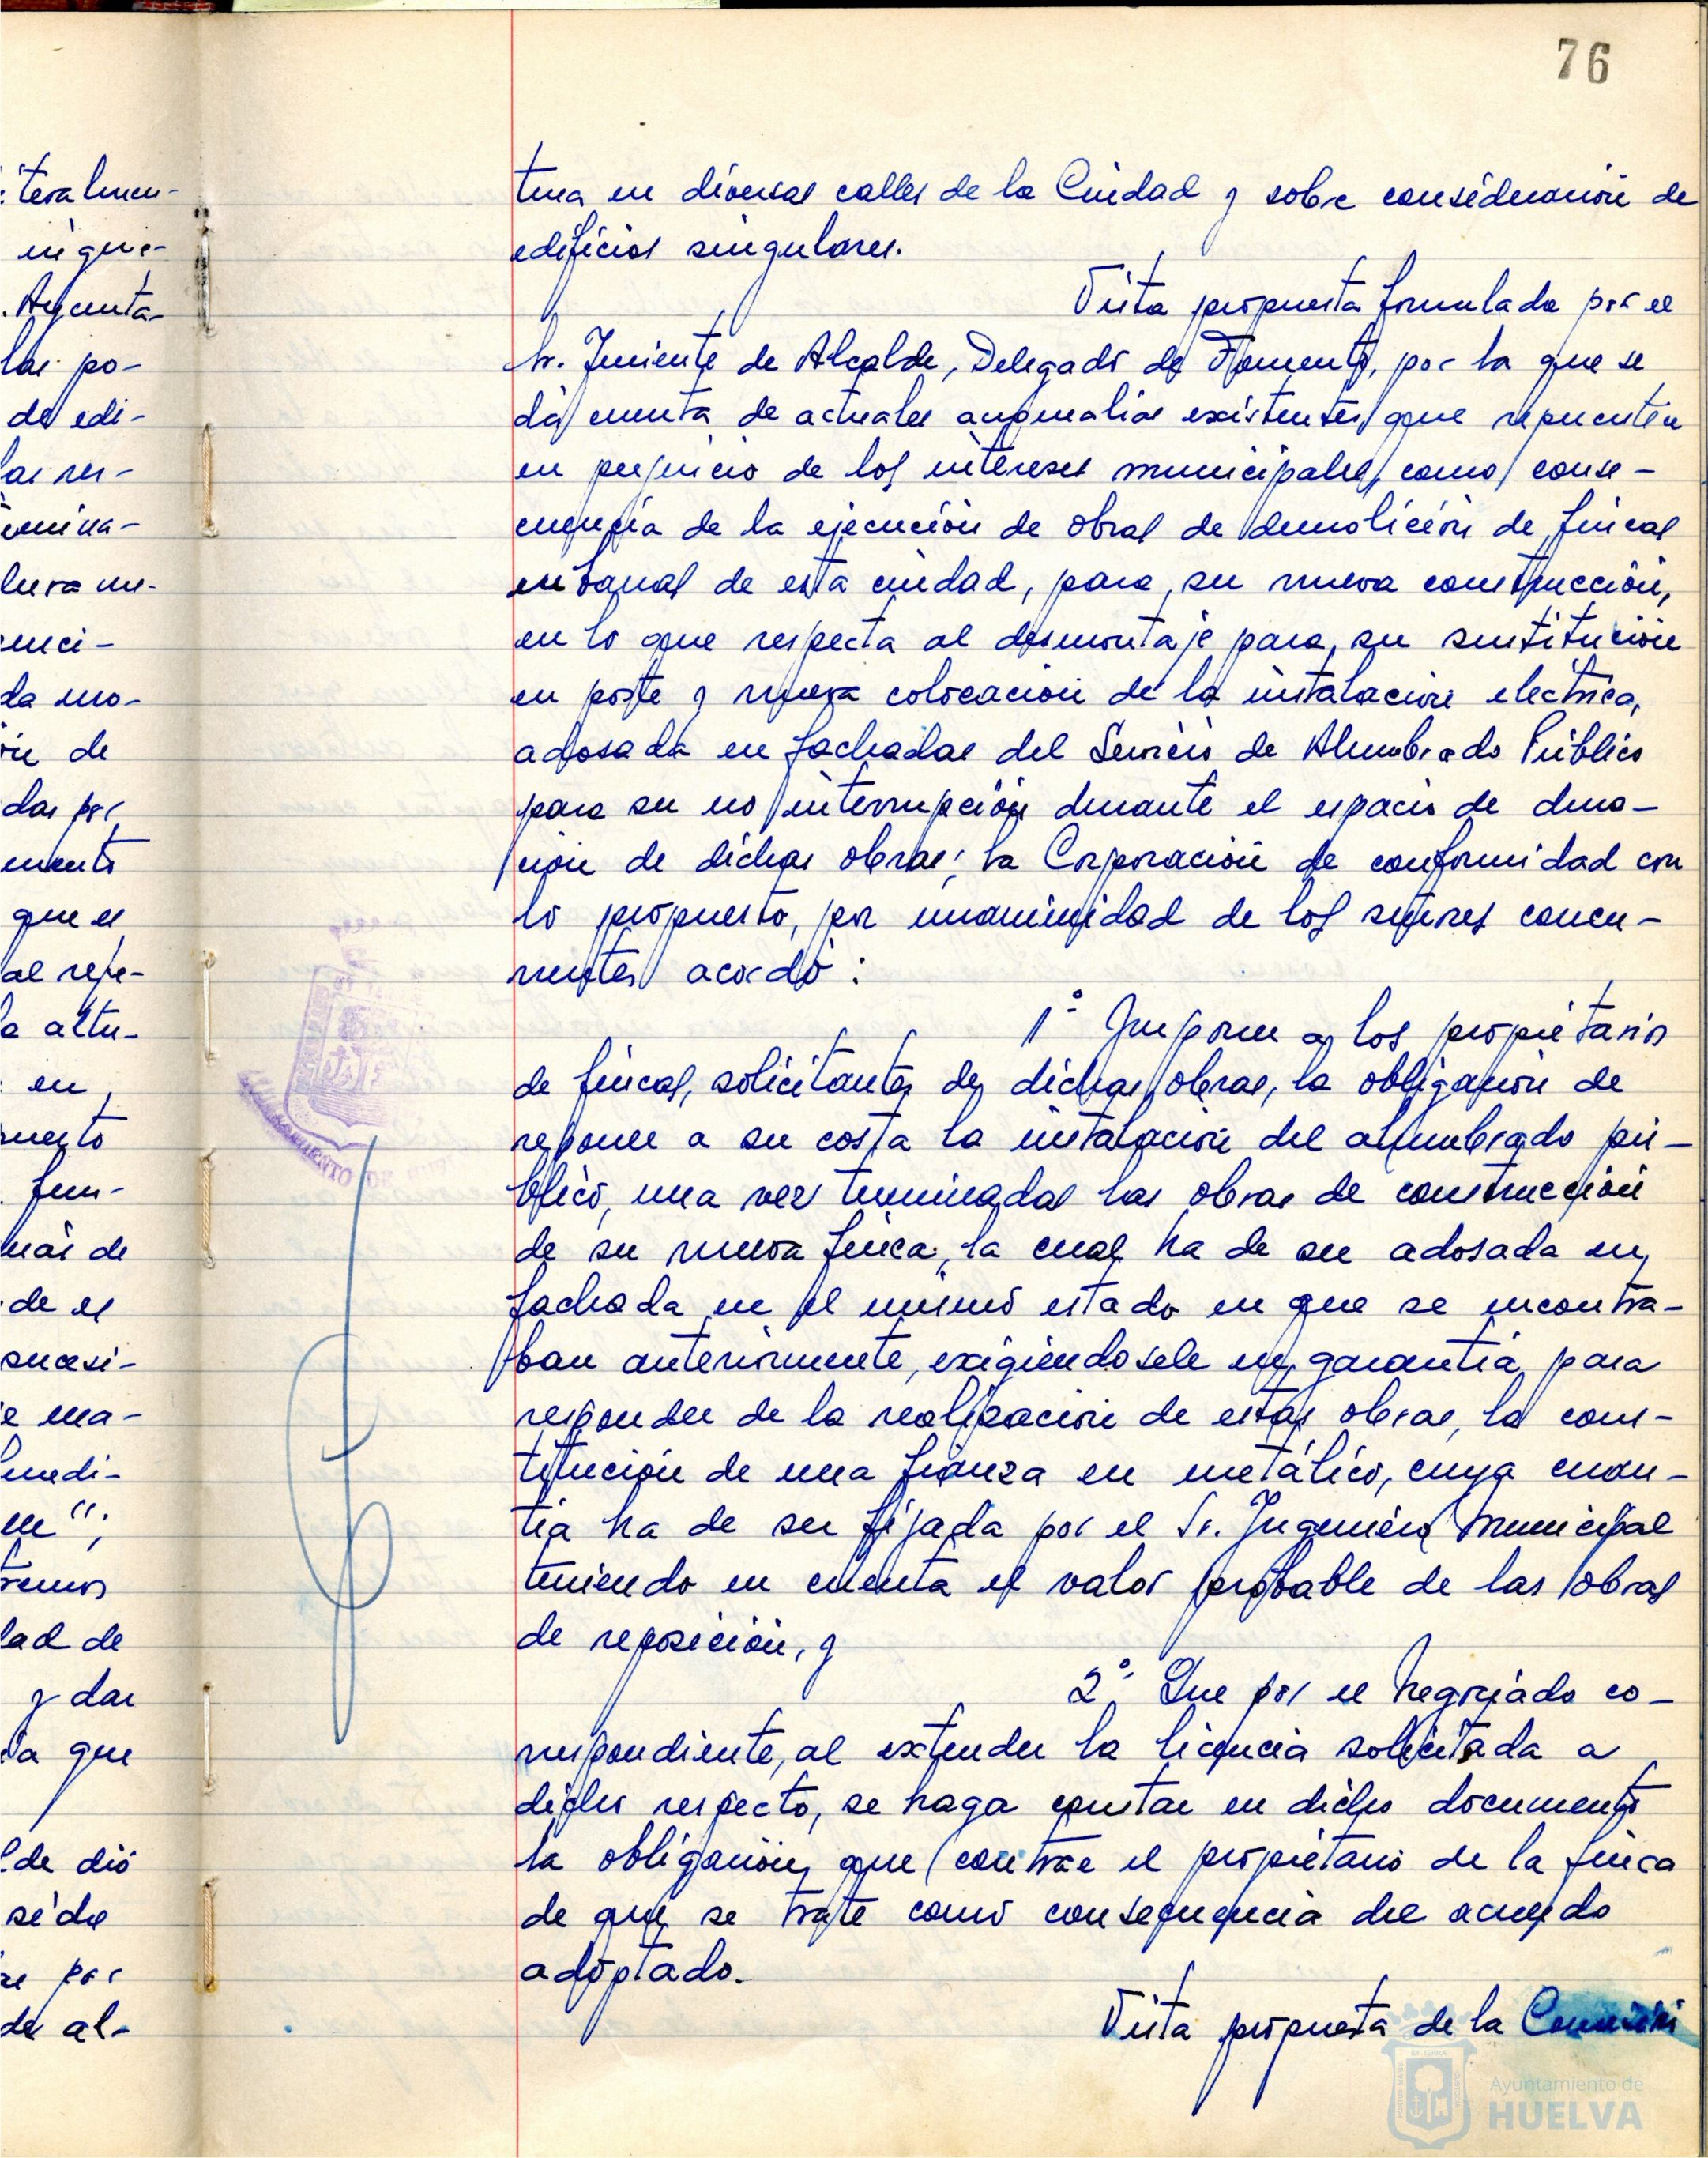 76
tura en diversas calles de la Ciudad y sobre consideración de
edificios singulares.
Vista propuesta formulada por el
Sr. Teniente de Alcalde, Delegado de Fomento, por la que se
dá cuenta de actuales anomalias existentes que repercuten
en perjuicio de los intereses municipales, como conse-
cuencia de la ejecución de obras de demolición de fincas
urbanas de esta ciudad, para su nueva construcción,
en lo que respecta al desmontaje para su sustitución
en poste y nueva colocación de la instalación eléctrica,
adosada en fachadas del Servicio de Alumbrado Público
para su no interrupción durante el espacio de dura-
ción de dichas obras; la Corporación de conformidad con
lo propuesto, por unanimidad de los señores concu-
rrentes acordó:
1º Imponer a los propietarios
de fincas, solicitantes de dichas obras, la obligación de
reponer a su costa la instalación del alumbrado pú-
blico, una vez terminadas las obras de construcción
de su nueva finca, la cual ha de ser adosada en
fachada en el mismo estado en que se encontra-
ban anteriormente, exigiendosele en garantía para
responder de la realización de estas obras, la cons-
titución de una fianza en metálico, cuya cuan-
tía ha de ser fijada por el Sr. Ingeniero Municipal
teniendo en cuenta el valor probable de las obras
de reposición, y
2º. Que por el Negociado co-
rrespondiente, al extender la licencia solicitada a
dicho respecto, se haga constar en dicho documento
la obligación que contrae el propietario de la finca
de que se trate como consecuencia del acuerdo
adoptado.
Vista propuesta de la Comisión
Ayuntamiento de
HUELVA